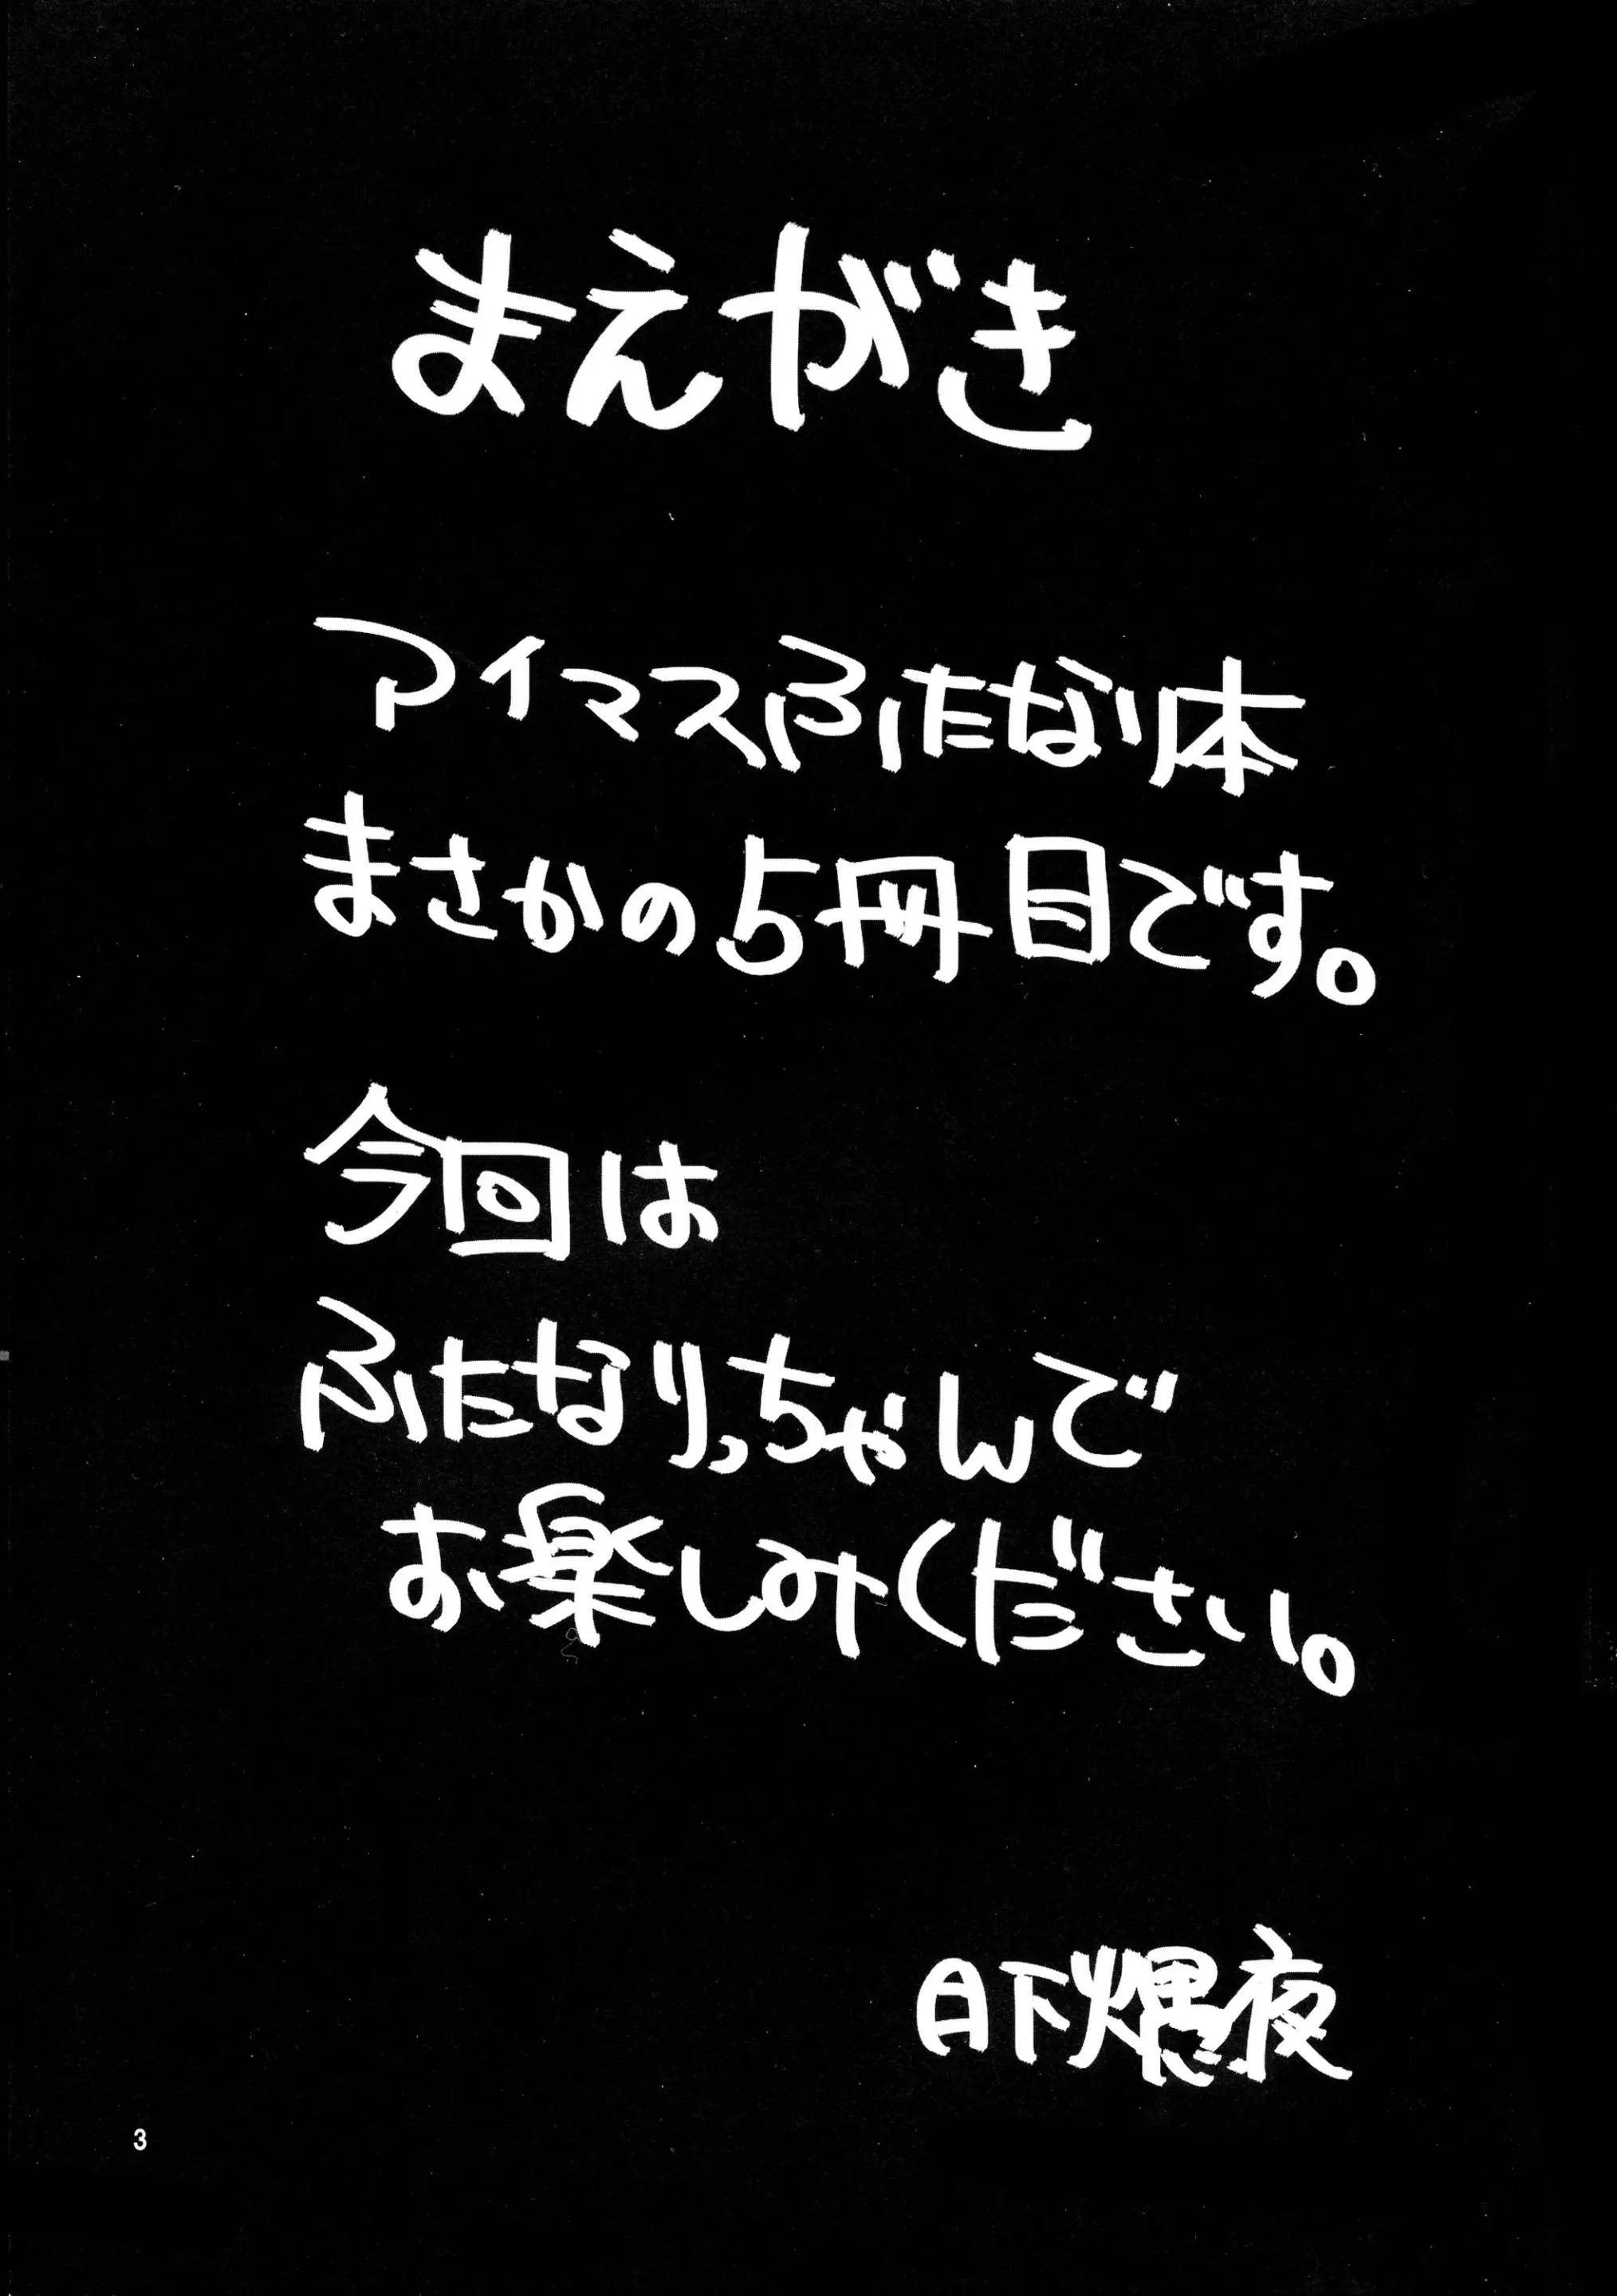 まえがき
アイマスふたなり本
まさかの5冊目です。
今回は
ふたなりっちゃんで
お楽しみください。
日下煨夜
3